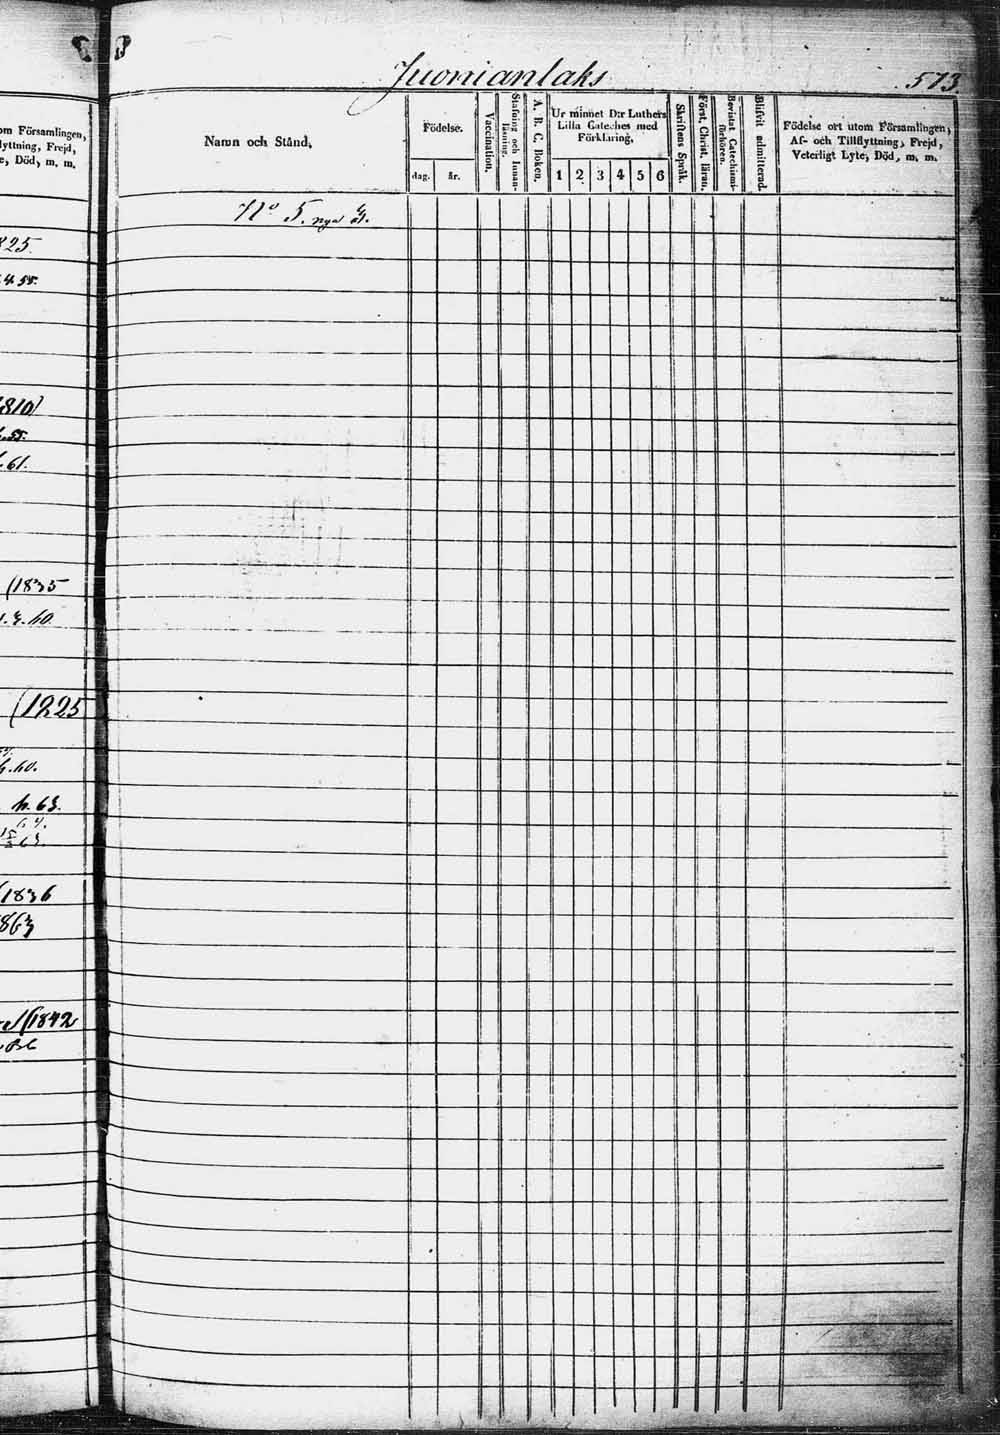 om Församlingen,
lyttning, Frejd,
e, Död, m. m.
825.
4.55.
1810)
.55.
.61.
(1835
.3.60.
(1225
h.60.
h.63.
(1836
863
(1842
Juonianlaks
573.
Namn och Stånd,
Födelse.
dag.
år.
Vaccination.
Stafning och Innan-
läsning.
A. B. C. Boken.
Ur minnet D:r Luthers
Lilla Cateches med
Förklaring,
1 2 3 4 5 6
Skriftens Språk.
Först. Christ. läran.
Bevistat Catechismi-
förhören.
Blifvit admitterad.
Födelse ort utom Församlingen,
Af- och Tillflyttning, Frejd,
Veterligt Lyte, Död, m. m.
No 5. nya